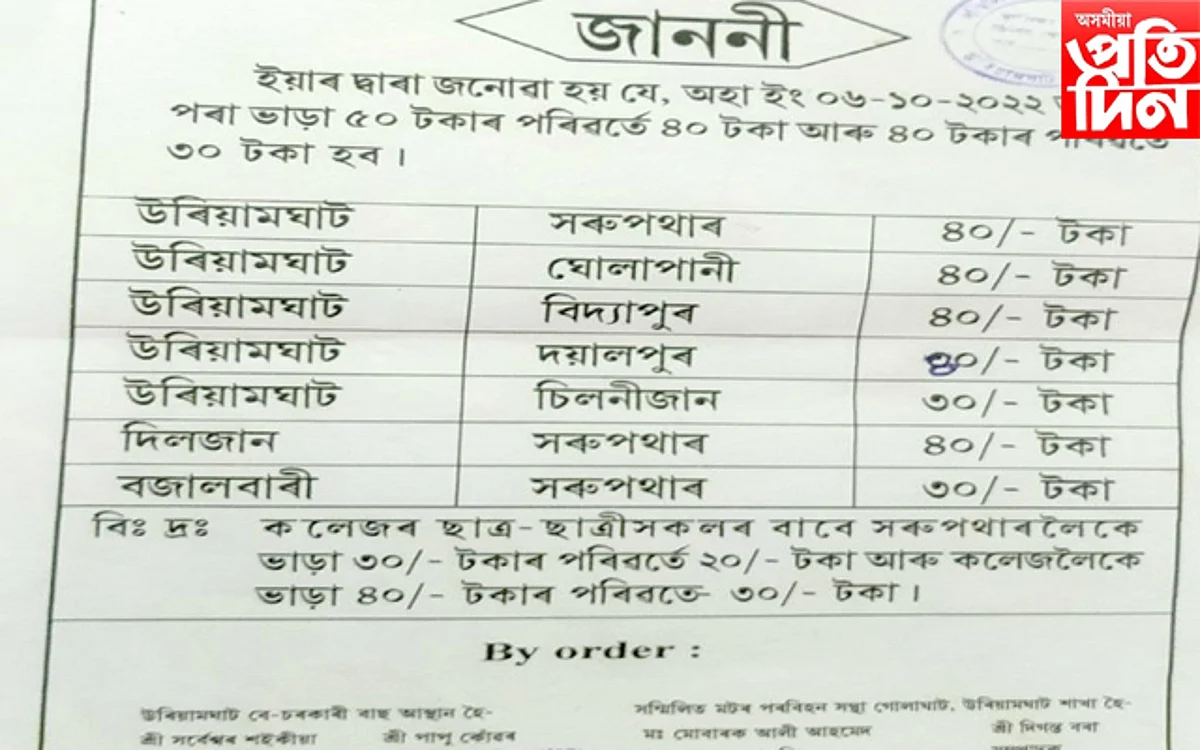 জাননী
অসমীয়া
প্ৰতি
দিন
ইয়াৰ দ্বাৰা জনোৱা হয় যে, অহা ইং ০৬-১০-২০২২
পৰা ভাড়া ৫০ টকাৰ পৰিৱৰ্তে ৪০ টকা আৰু ৪০ টকাৰ পৰিৱৰ্তে
৩০ টকা হব ।
উৰিয়ামঘাট সৰুপথাৰ ৪০/- টকা
উৰিয়ামঘাট ঘোলাপানী ৪০/- টকা
উৰিয়ামঘাট বিদ্যাপুৰ ৪০/- টকা
উৰিয়ামঘাট দয়ালপুৰ ৪০/- টকা
উৰিয়ামঘাট চিলনীজান ৩০/- টকা
দিলজান সৰুপথাৰ ৪০/- টকা
বজালবাৰী সৰুপথাৰ ৩০/- টকা
বিঃ দ্ৰঃ কলেজৰ ছাত্ৰ-ছাত্ৰীসকলৰ বাবে সৰুপথাৰলৈকে
ভাড়া ৩০/- টকাৰ পৰিৱৰ্তে ২০/- টকা আৰু কলেজলৈকে
ভাড়া ৪০/- টকাৰ পৰিৱৰ্তে ৩০/- টকা ।
By order :
উৰিয়ামঘাট বে-চৰকাৰী বাছ আস্থান হৈ-
সন্মিলিত মটৰ পৰিবহন সন্থা গোলাঘাট, উৰিয়ামঘাট শাখা হৈ-
শ্ৰী সৰ্বেশ্বৰ শইকীয়া শ্ৰী পাপু কোঁৱৰ
মঃ মোবাৰক আলী আহমেদ শ্ৰী দিগন্ত বৰা